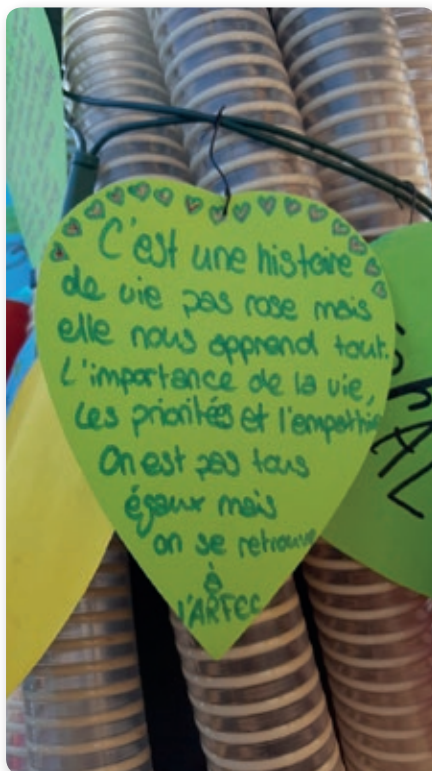 C'est une histoire
de vie pas rose mais
elle nous apprend tout.
L'importance de la vie,
Les priorités et l'empathie
On est pas tous
égaux mais
on se retrouve
à
l'ARFEC